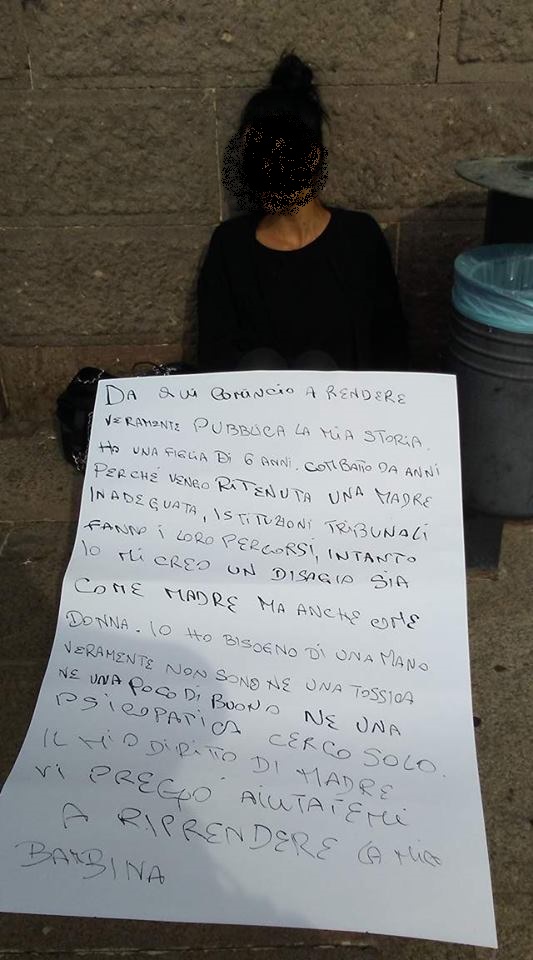 DA QUI COMINCIO A RENDERE
VERAMENTE PUBBLICA LA MIA STORIA.
HO UNA FIGLIA DI 6 ANNI. COMBATTO DA ANNI
PERCHÉ VENGO RITENUTA UNA MADRE
INADEGUATA, ISTITUZIONI TRIBUNALI
FANNO I LORO PERCORSI, INTANTO
IO MI CREO UN DISAGIO SIA
COME MADRE MA ANCHE COME
DONNA. IO HO BISOGNO DI UNA MANO
VERAMENTE NON SONO NE UNA TOSSICA
NE UNA POCO DI BUONO NE UNA
PSICOPATICA CERCO SOLO.
IL MIO DIRITO DI MADRE
VI PREGO AIUTATEMI
A RIPRENDERE LA MIA
BAMBINA